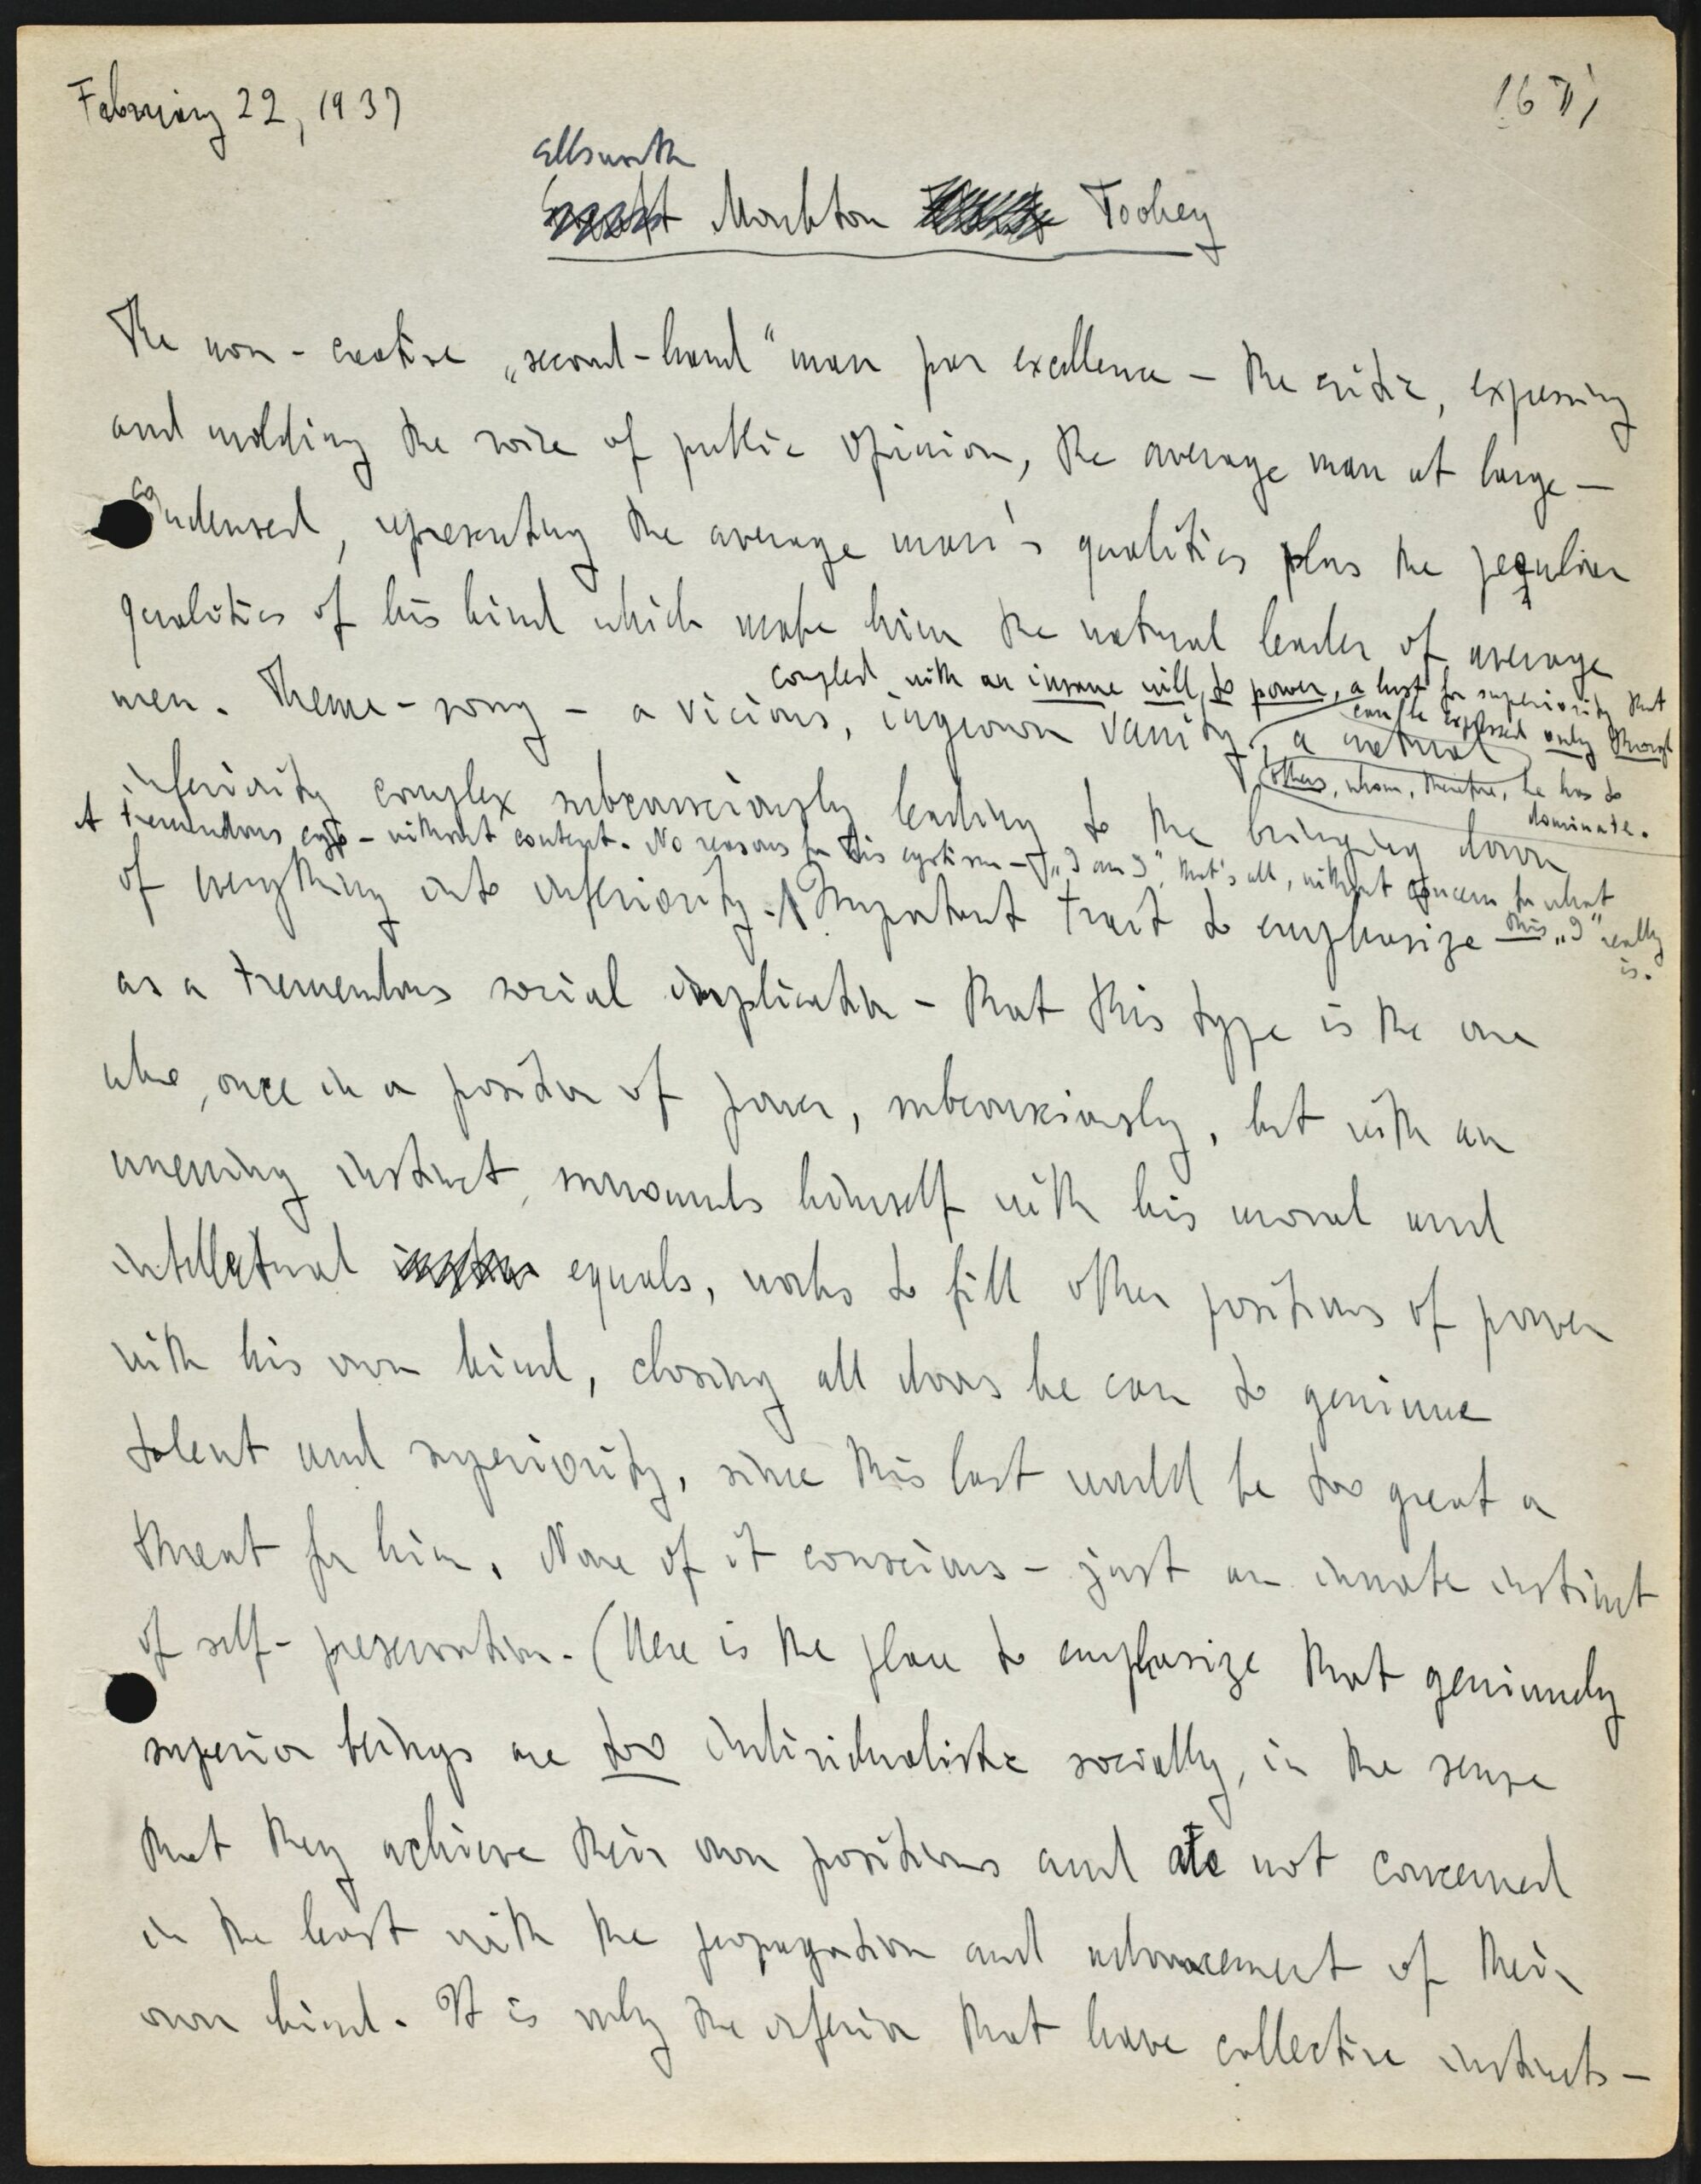 February 22, 1937
Ellsworth
Monkton Toohey
The non-creative „second-hand" man par excellence – the critic, expressing
and molding the voice of public opinion, the average man at large –
condensed, representing the average man's qualities plus the peculiar
qualities of his kind which make him the natural leader of average
coupled with an insane will to power, a lust for superiority that
can be expressed only through
others, whom, therefore, he has to
dominate.
men. Theme-song – a vicious, ingrown vanity, a natural
inferiority complex subconsciously leading to the bringing down
A tremendous ego – without content. No reasons for his egotism – „I am I", that's all, without concern for what
this „I" really
is.
of everything into inferiority. Important trait to emphasize
as a tremendous social implication – that this type is the one
who, once in a position of power, subconsciously, but with an
unerring instinct, surrounds himself with his moral and
intellectual equals, works to fill other positions of power
with his own kind, closing all doors he can to genuine
talent and superiority, since this last would be too great a
threat for him. None of it conscious – just an innate instinct
of self-preservation. (Here is the place to emphasize that genuinely
superior beings are too individualistic socially, in the sense
that they achieve their own positions and are not concerned
in the least with the propagation and advancement of their
own kind. It is only the inferior that have collective instincts –